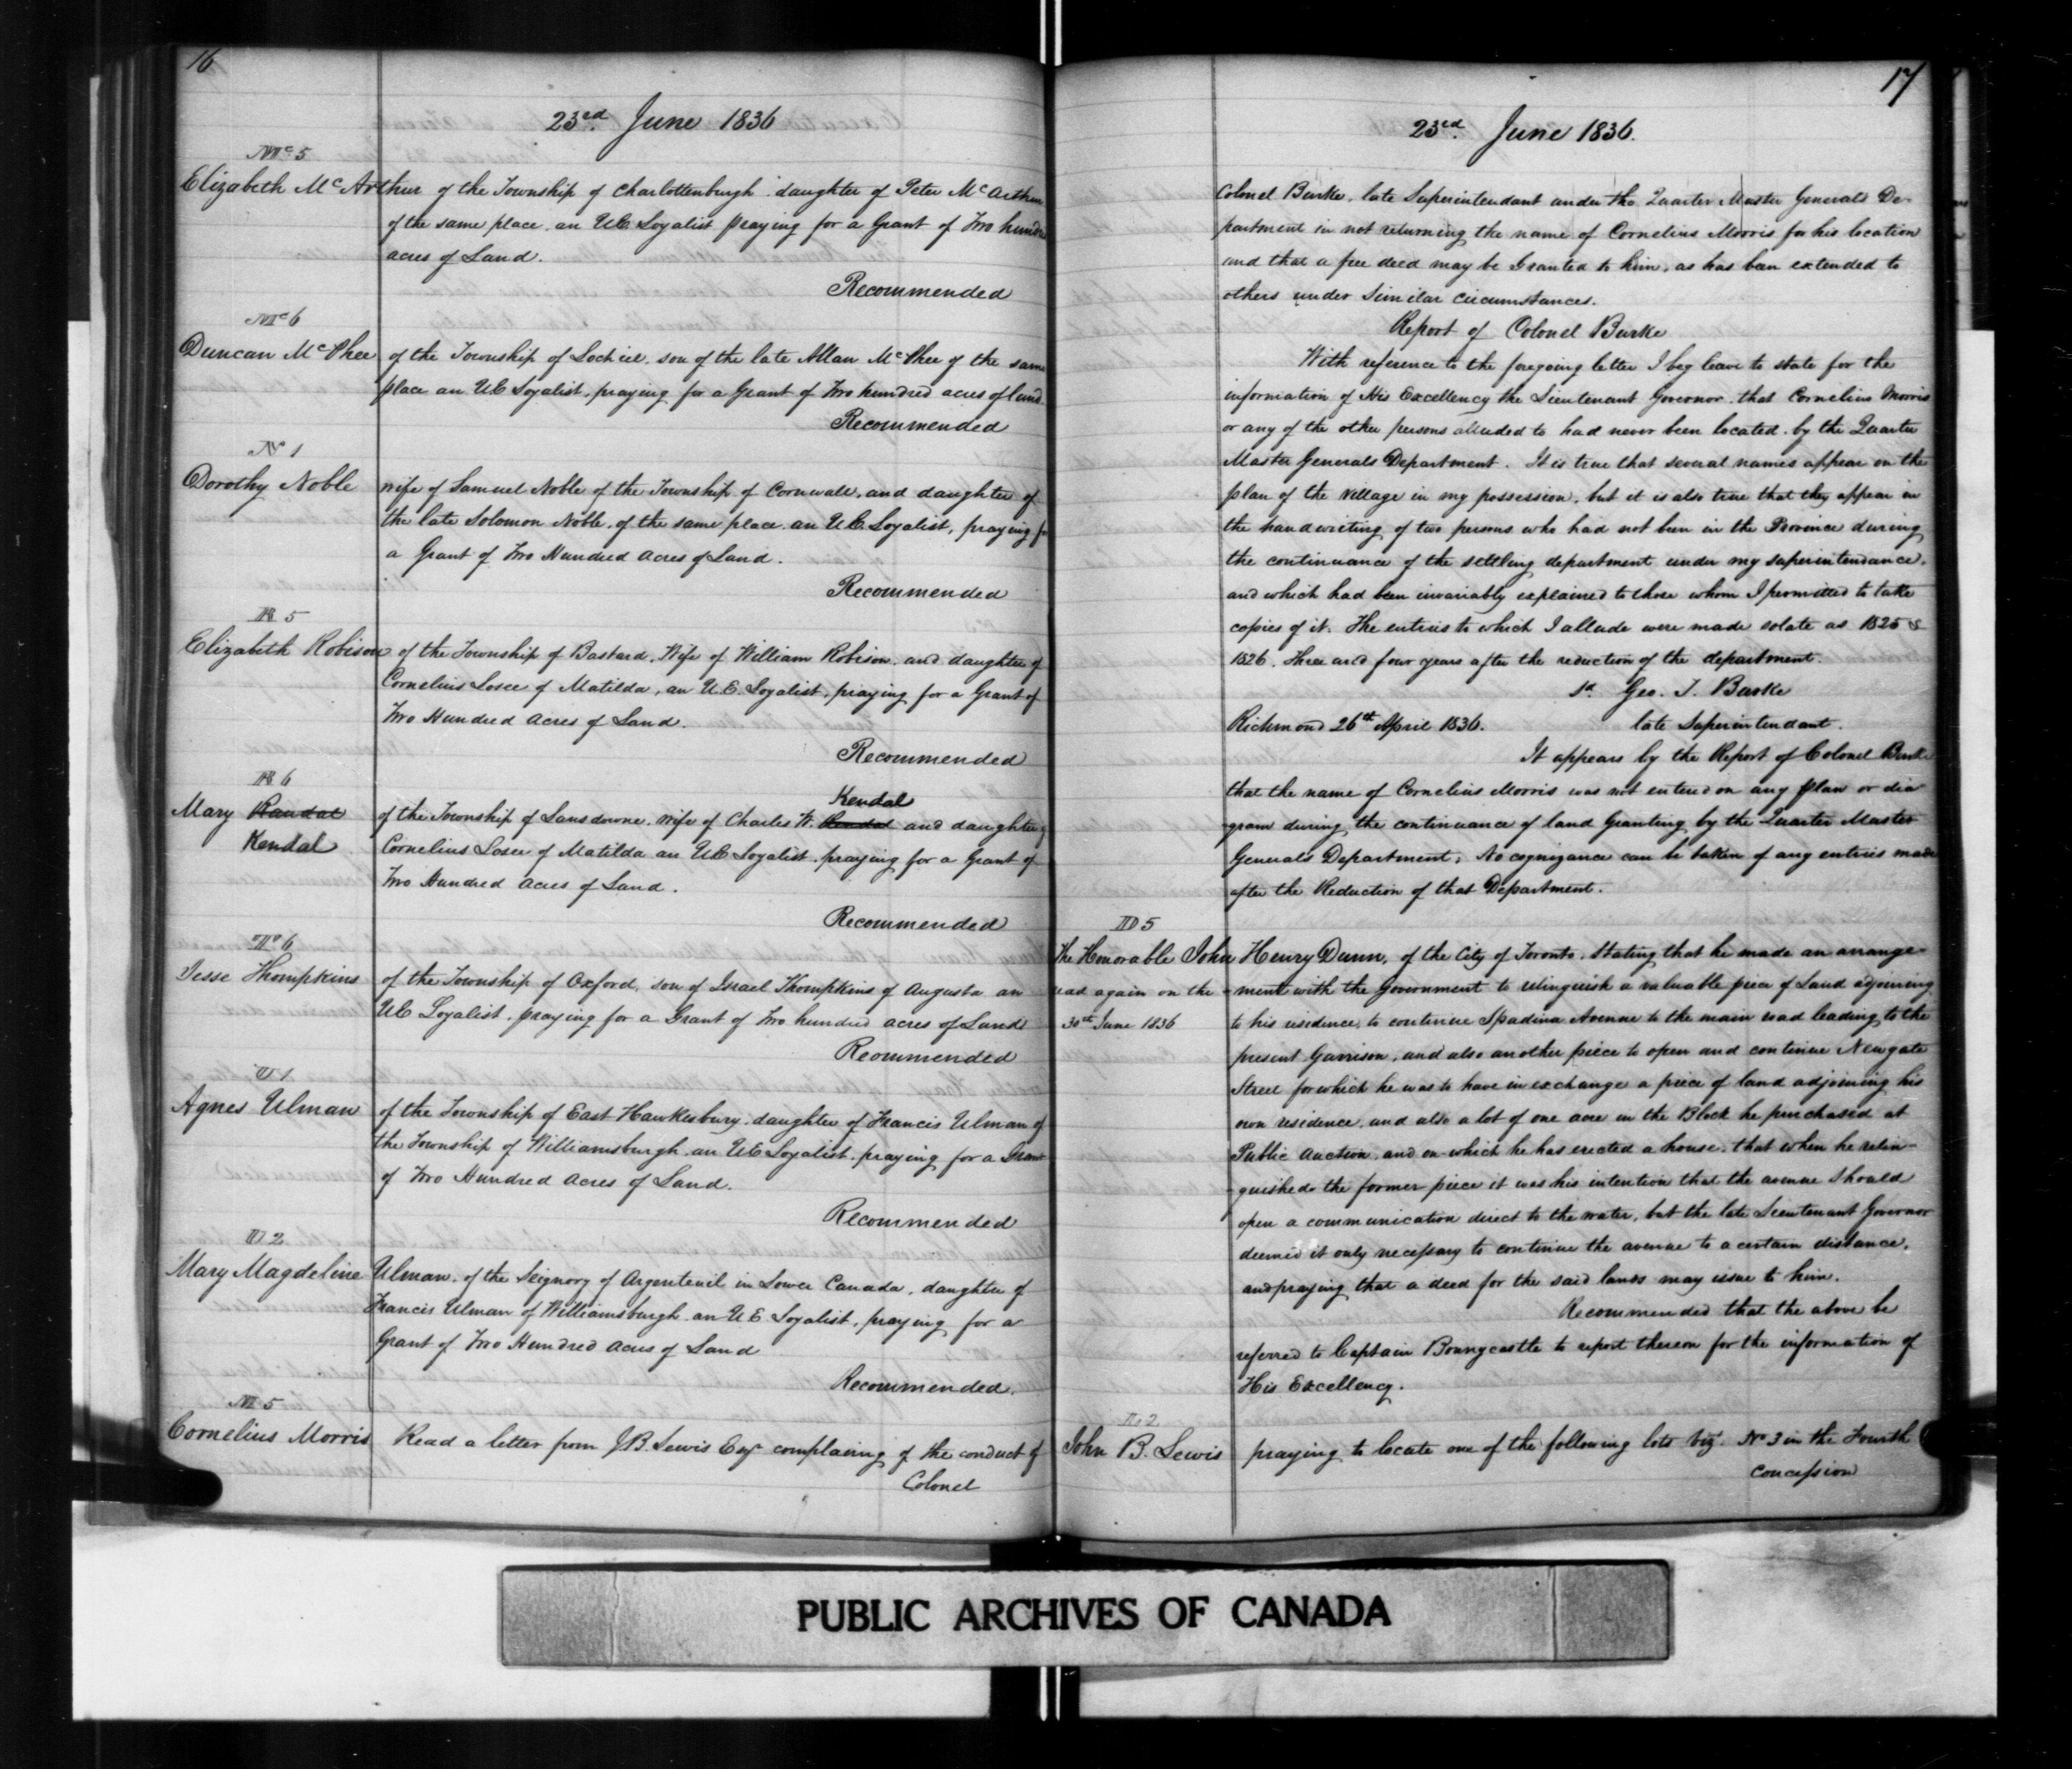 16
23rd June 1836
Mc 5
Elizabeth McArthur of the Township of Charlottenburgh daughter of Peter McArthur
of the same place, an UE Loyalist praying for a Grant of Two hundred
acres of Land.
Recommended
Mc 6
Duncan McPhee of the Township of Lochiel, son of the late Allan McPhee of the same
place an UE Loyalist, praying for a Grant of Two hundred acres of land
Recommended
N 1
Dorothy Noble wife of Samuel Noble of the Township of Cornwall, and daughter of
the late Solomon Noble, of the same place an UE Loyalist, praying for
a Grant of Two Hundred Acres of Land.
Recommended
R 5
Elizabeth Robison of the Township of Bastard, Wife of William Robison, and daughter of
Cornelius Losee of Matilda, an U.E. Loyalist, praying for a Grant of
Two Hundred Acres of Land.
Recommended
R 6
Kendal
Mary Randal of the Township of Lansdowne, wife of Charles W. and daughter of
Kendal Cornelius Losee of Matilda an UE Loyalist, praying for a Grant of
Two Hundred Acres of Land.
Recommended
T 6
Jesse Thompkins of the Township of Oxford, son of Israel Thompkins of Augusta an
UE Loyalist, praying for a Grant of Two hundred acres of Land
Recommended
U 1
Agnes Ulman of the Township of East Hawkesbury, daughter of Francis Ulman of
the Township of Williamsburgh an UE Loyalist, praying for a Grant
of Two Hundred Acres of Land.
Recommended
U 2
Mary Magdeline Ulman, of the Seignory of Argenteuil in Lower Canada, daughter of
Francis Ulman of Williamsburgh an U E Loyalist, praying for a
Grant of Two Hundred Acres of Land
Recommended.
M 5
Cornelius Morris Read a letter from J.B. Lewis Esqr complaining of the conduct of
Colonel
17
23rd June 1836.
Colonel Burke, late Superintendant under the Quarter Master Generals De-
partment in not returning the name of Cornelius Morris for his location
and that a free deed may be Granted to him, as has been extended to
others under Similar Circumstances.
Report of Colonel Burke
With reference to the foregoing letter I beg leave to state for the
information of His Excellency the Lieutenant Governor that Cornelius Morris
or any of the other persons alluded to had never been located by the Quarter
Master Generals Department. It is true that several names appear on the
plan of the Village in my possession, but it is also true that they appear in
the handwriting of two persons who had not been in the Province during
the continuance of the settling department under my superintendance,
and which had been invariably explained to those whom I permitted to take
copies of it. The entries to which I allude were made solate as 1825 &
1826. Three and four years after the reduction of the department.
sd Geo. T. Burke
Richmond 26th April 1836. late Superintendant.
It appears by the Report of Colonel Burke
that the name of Cornelius Morris was not entered on any plan or dia
-gram during the continuance of land Granting by the Quarter Master
Generals Department, No cognizance can be taken of any entries made
after the Reduction of that Department.
D 5
The Honorable John Henry Dunn, of the City of Toronto, Stating that he made an arrange-
read again on the -ment with the Government to relinquish a valuable piece of Land adjoining
30th June 1836 to his residence, to continue Spadina Avenue to the main road leading to the
present Garrison, and also another piece to open and continue Newgate
Street for which he was to have in exchange a piece of land adjoining his
own residence, and also a lot of one acre in the Block he purchased at
Public Auction, and on which he has erected a house, that when he relin-
-quished the former piece it was his intention that the avenue should
open a communication direct to the water, but the late Lieutenant Governor
deemed it only necessary to continue the avenue to a certain distance,
and praying that a deed for the said lands may issue to him.
Recommended that the above be
referred to Captain Bonnycastle to report thereon for the information of
His Excellency.
L 2
John B. Lewis praying to locate one of the following lots Viz. No 3 in the Fourth
Concession
PUBLIC ARCHIVES OF CANADA